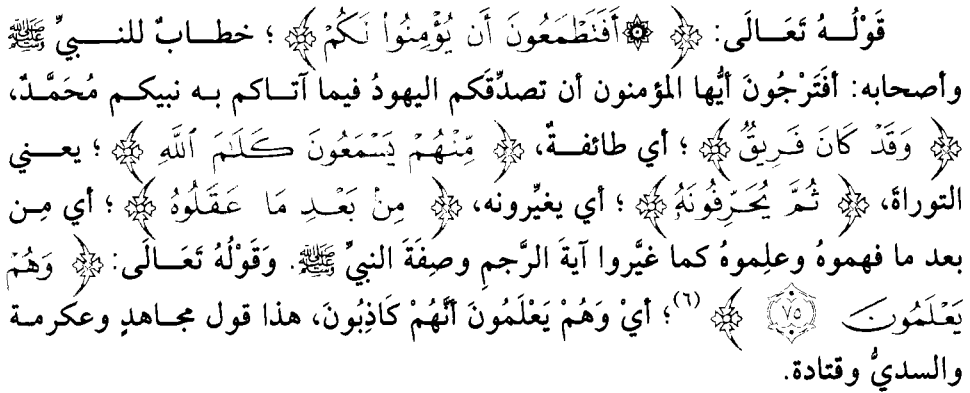 قَوْلُـهُ تَعَـالَى: ﴿ ۞ أَفَتَطْمَعُونَ أَن يُؤْمِنُوا۟ لَكُمْ ﴾ ؛ خطـابٌ للنـبيِّ ﷺ
وأصحابه: أفَتَرْجُونَ أيُّها المؤمنون أن تصدِّقَكم اليهودُ فيما آتـاكم بـه نبيكـم مُحَمَّـدٌ،
﴿ وَقَدْ كَانَ فَرِيقٌ ﴾ ؛ أي طائفـةٌ، ﴿ مِّنْهُمْ يَسْمَعُونَ كَلَـٰمَ ٱللَّهِ ﴾ ؛ يعـني
التوراةَ، ﴿ ثُمَّ يُحَرِّفُونَهُۥ ﴾ ؛ أي يغيِّرونه، ﴿ مِنۢ بَعْدِ مَا عَقَلُوهُ ﴾ ؛ أي مِـن
بعد ما فهموهُ وعلِموهُ كما غيَّروا آيةَ الرَّجمِ وصِفَةَ النبيِّ ﷺ. وَقَوْلُهُ تَعَـالَى: ﴿ وَهُمْ
يَعْلَمُونَ ٧٥ ﴾ (٦)؛ أيْ وَهُمْ يَعْلَمُونَ أنَّهُمْ كَاذِبُونَ، هذا قول مجـاهدٍ وعكرمـة
والسديُّ وقتادة.